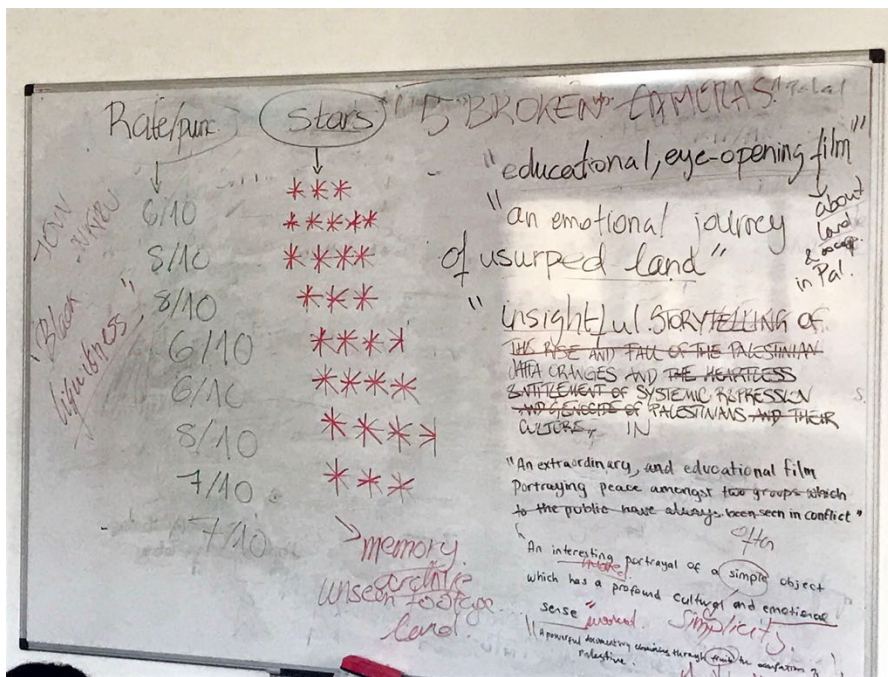 Rate/punc.
Stars
5 "BROKEN" CAMERAS"
6/10
8/10
8/10
6/10
6/10
8/10
7/10
7/10
JOIN
"Black
***
*****
****
***
****
****
****
***
memory
archive
unseen footage
land
"educational, eye-opening film"
about
land
&
in Pal.
"an emotional journey
of usurped land"
"insightful STORYTELLING OF
THE RISE AND FALL OF THE PALESTINIAN
JAFFA ORANGES AND THE HEARTLESS
ENTITLEMENT OF SYSTEMIC REPRESSION
AND GENOCIDE OF PALESTINANS AND THEIR
CULTURE, IN
"An extraordinary, and educational film
Portraying peace amongst two groups which
to the public have always been seen in conflict"
often
An interesting portrayal of a simple object
which has a profound cultural and emotional
sense"
simplicity.
"A powerful documentary through fruit the occupation of
Palestine.